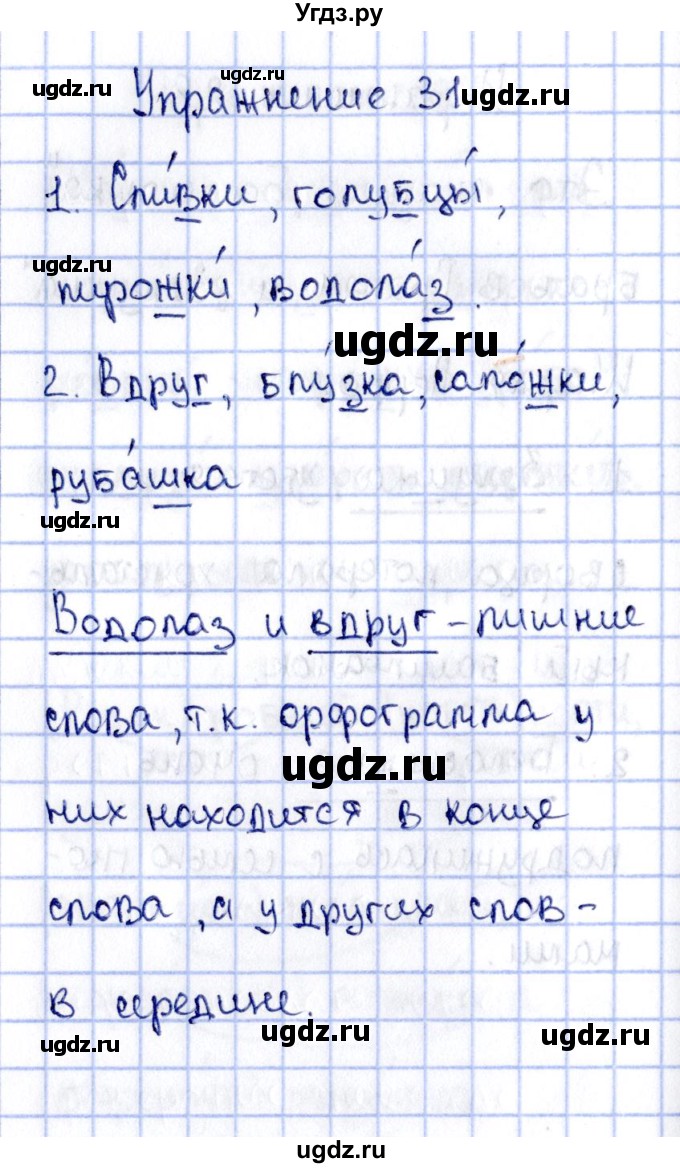 Угдз.ру
ugdz.ru
ugdz.ru Упражнение 31 ugdz.ru
1. Сли́вки, голубцы́,
ugdz.ru
пирожки́, водола́з.
ugdz.ru
2. Вдруг, блу́зка, сапо́жки,
руба́шка
ugdz.ru
Водолаз и вдруг - лишние
слова, т.к. орфограмма у
ugdz.ru
них находится в конце
слова, а у других слов -
в середине.
ugdz.ru ugdz.ru ugdz.ru
Угдз.ру